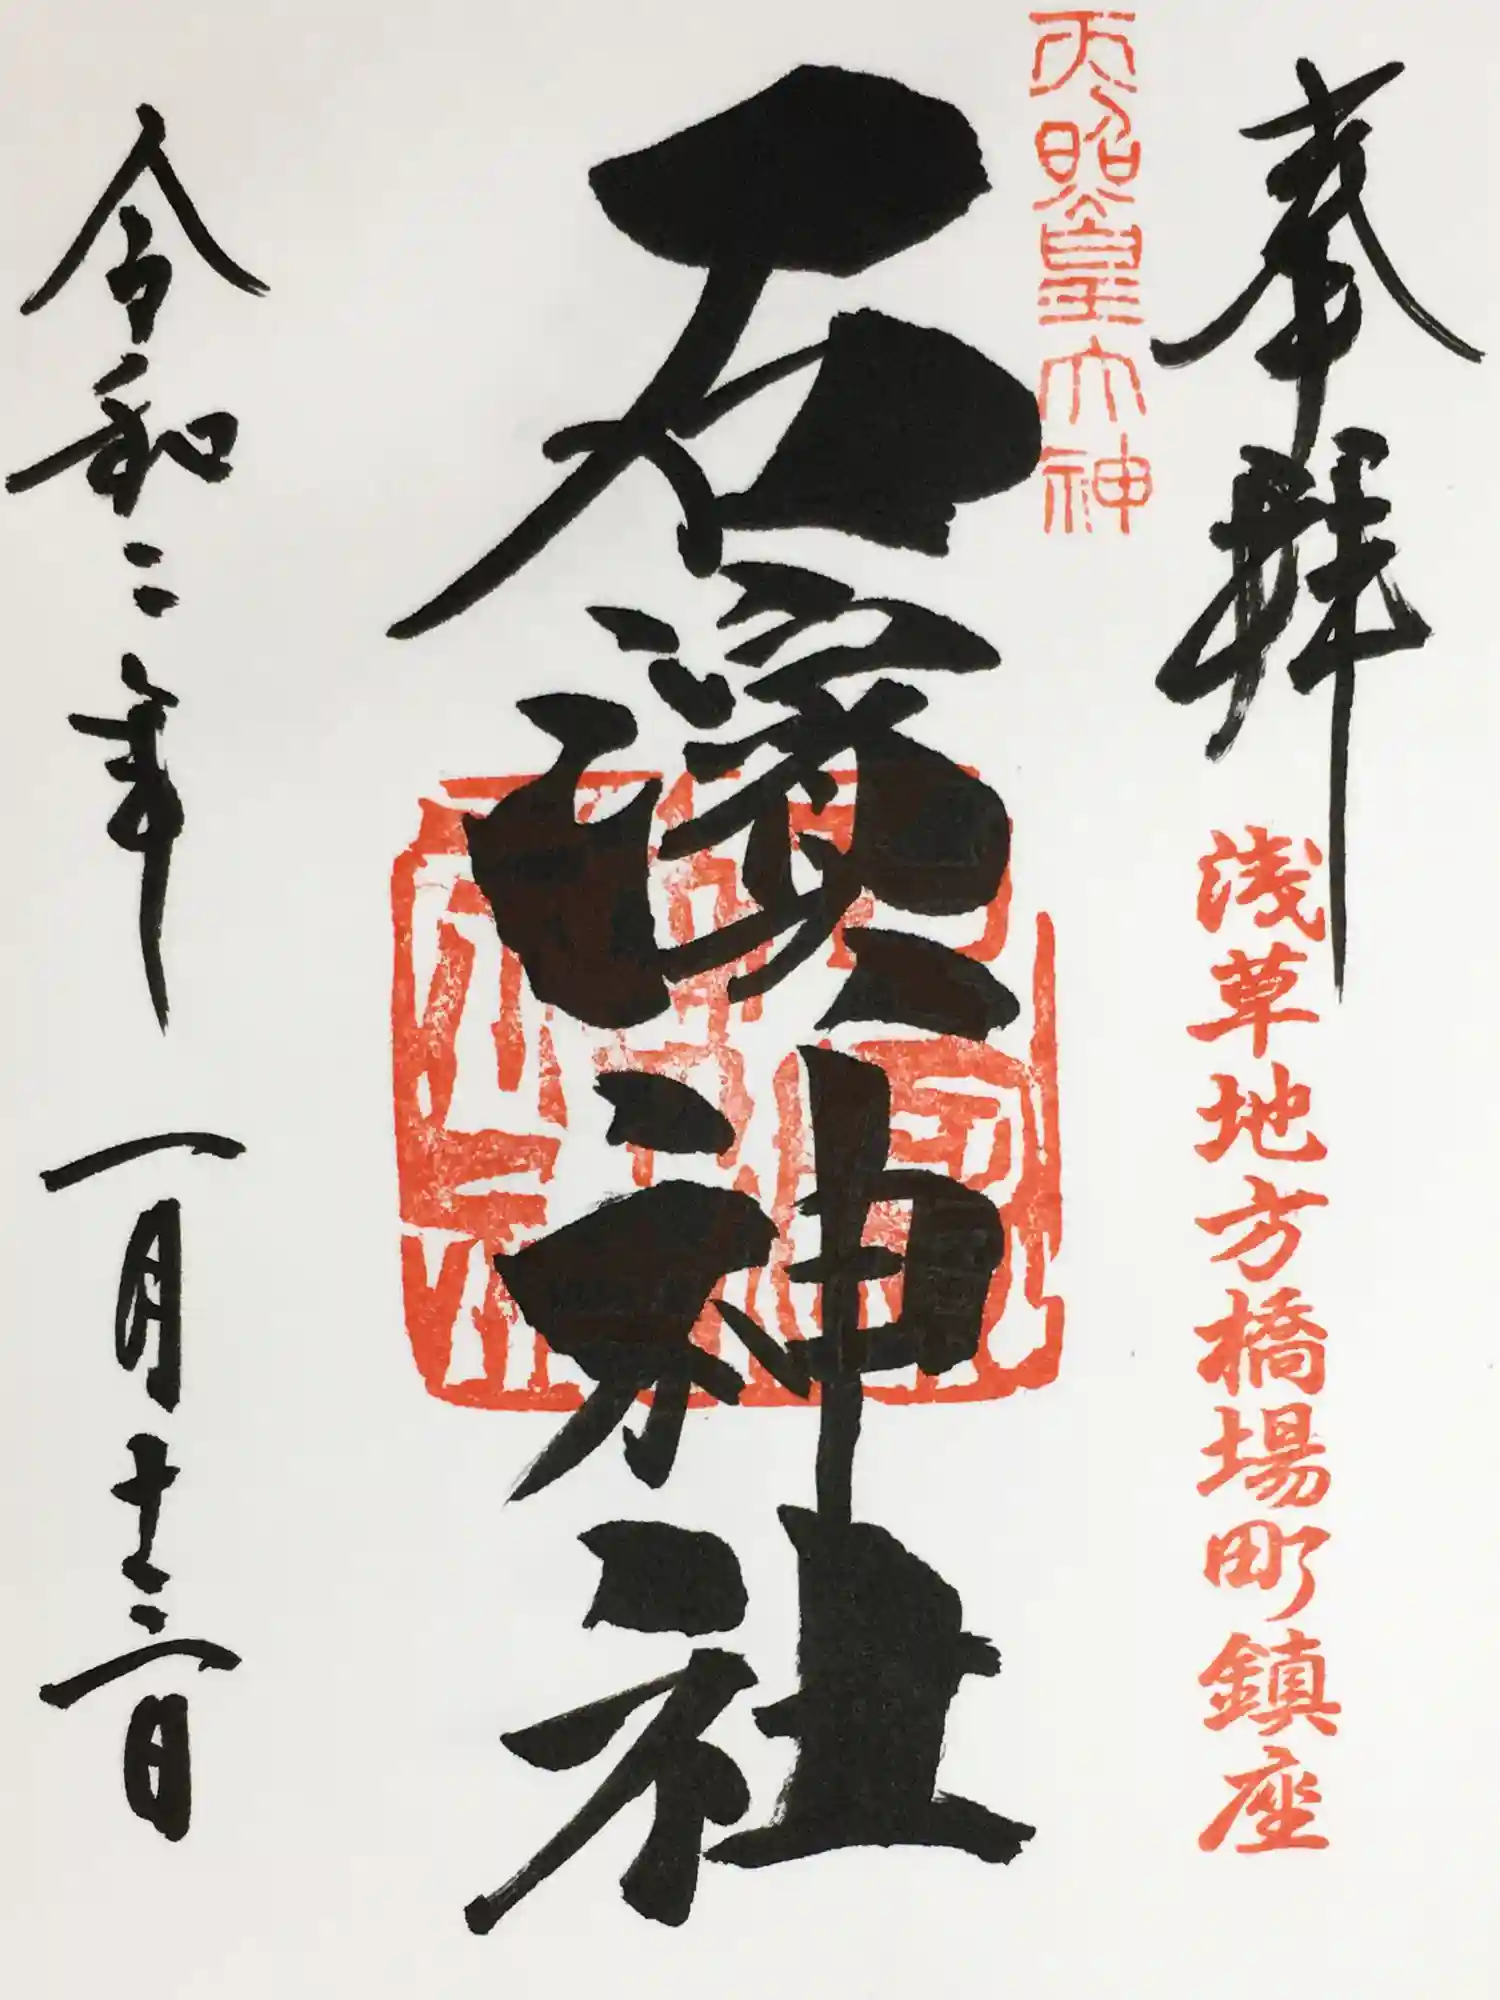 奉拝
浅草地方橋場町鎮座
天照皇大神
石濱神社
令和二年 一月十二日